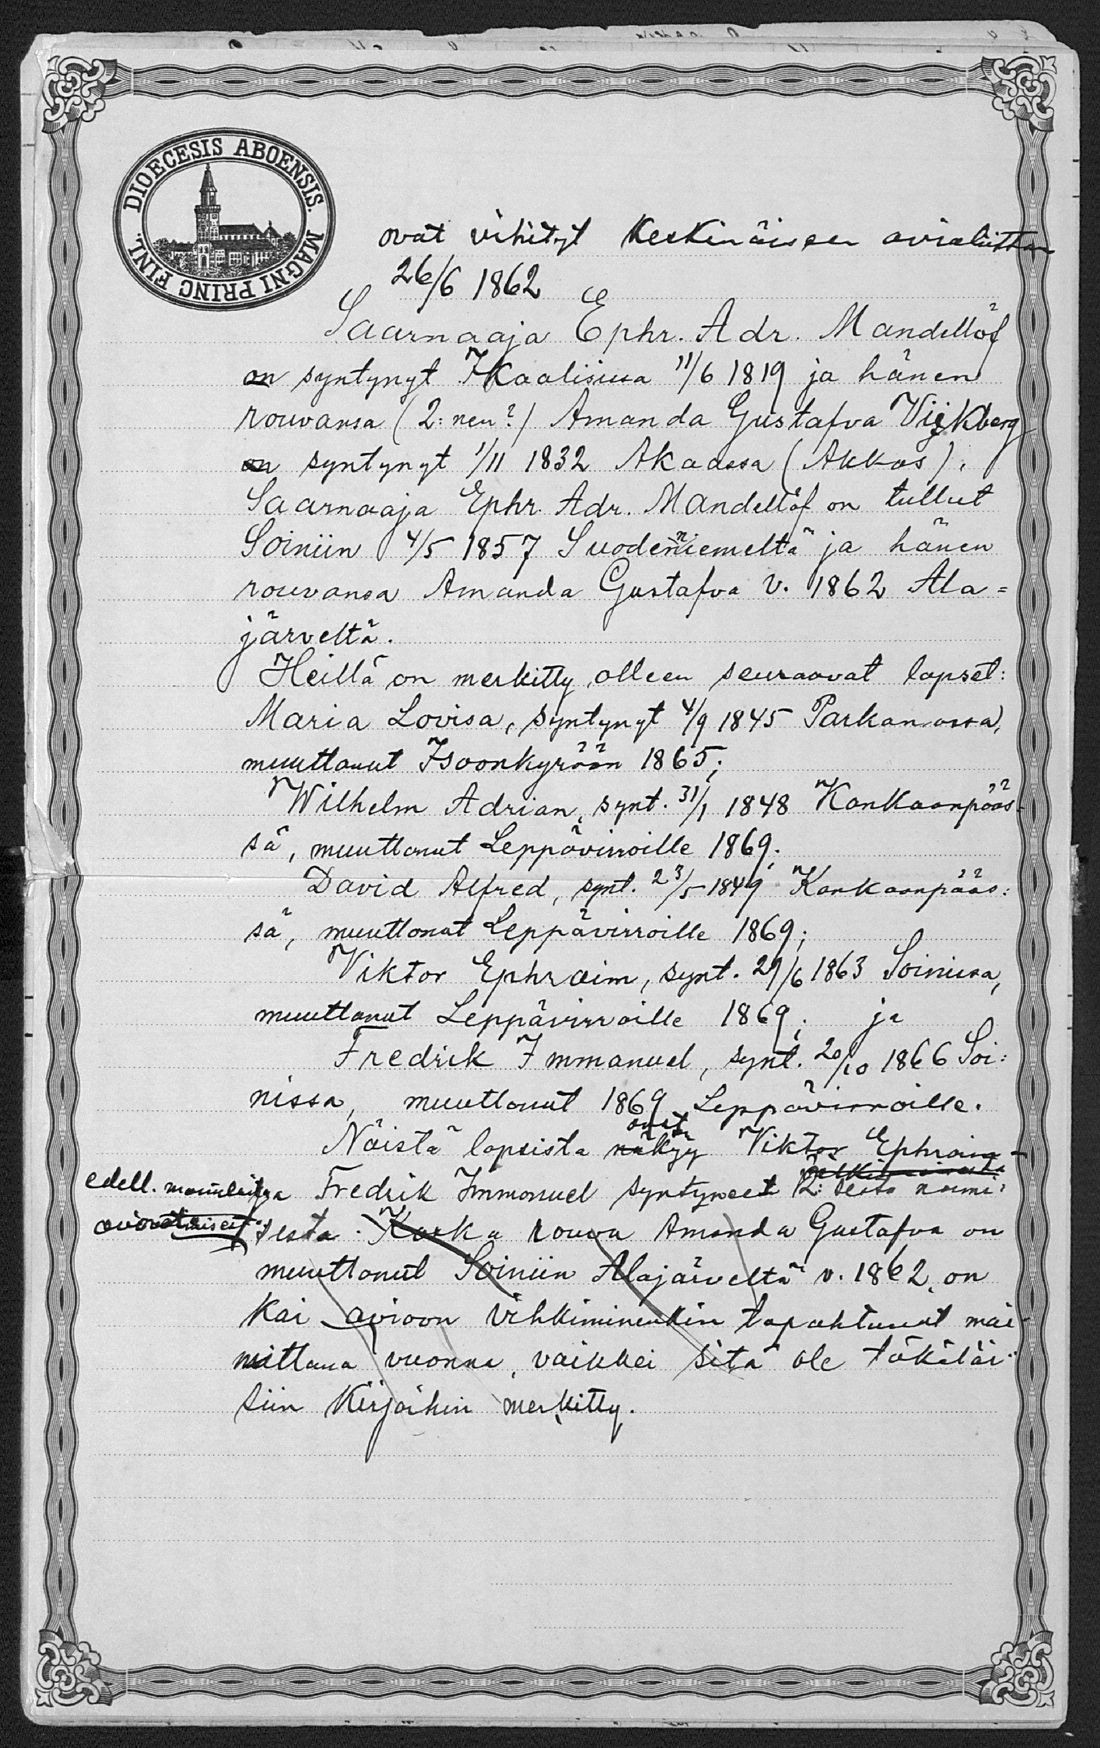 DIOECESIS ABOENSIS. MAGNI PRINC FINL.
ovat vihityt keskinäiseen avioliittoon
26/6 1862
Saarnaaja Ephr. Adr. Mandellöf
on syntynyt Ikaalisissa 11/6 1819 ja hänen
rouvansa (2:nen?) Amanda Gustafva Vijkberg
on syntynyt 1/11 1832 Akaassa (Akkas).
Saarnaaja Ephr. Adr. Mandellöf on tullut
Soiniin 4/5 1857 Suodenniemeltä ja hänen
rouvansa Amanda Gustafva v. 1862 Ala=
järveltä.
Heillä on merkitty olleen seuraavat lapset:
Maria Lovisa, syntynyt 4/9 1845 Parkanossa,
muuttanut Isoonkyröön 1865;
Wilhelm Adrian, synt. 31/1 1848 Kankaanpääs-
sä, muuttanut Leppävirroille 1869;
David Alfred, synt. 23/5 1849 Kankaanpääs:
sä, muuttanut Leppävirroille 1869;
Viktor Ephraim, synt. 29/6 1863 Soinissa,
muuttanut Leppävirroille 1869; ja
Fredrik Immanuel, synt. 20/10 1866 Soi:
nissa, muuttanut 1869 Leppävirroille.
Näistä lapsista näkyy ovat Viktor Ephraim
edell. mainleitga Fredrik Immanuel syntyneet 2:sesta naimi:
sesta. Koska rouva Amanda Gustafva on
muuttanut Soiniin Alajärveltä v. 1862, on
kai avioon vihkiminenkin tapahtunut mai-
nittuna vuonna, vaikkei sitä ole täkäläi:
siin kirjoihin merkitty.